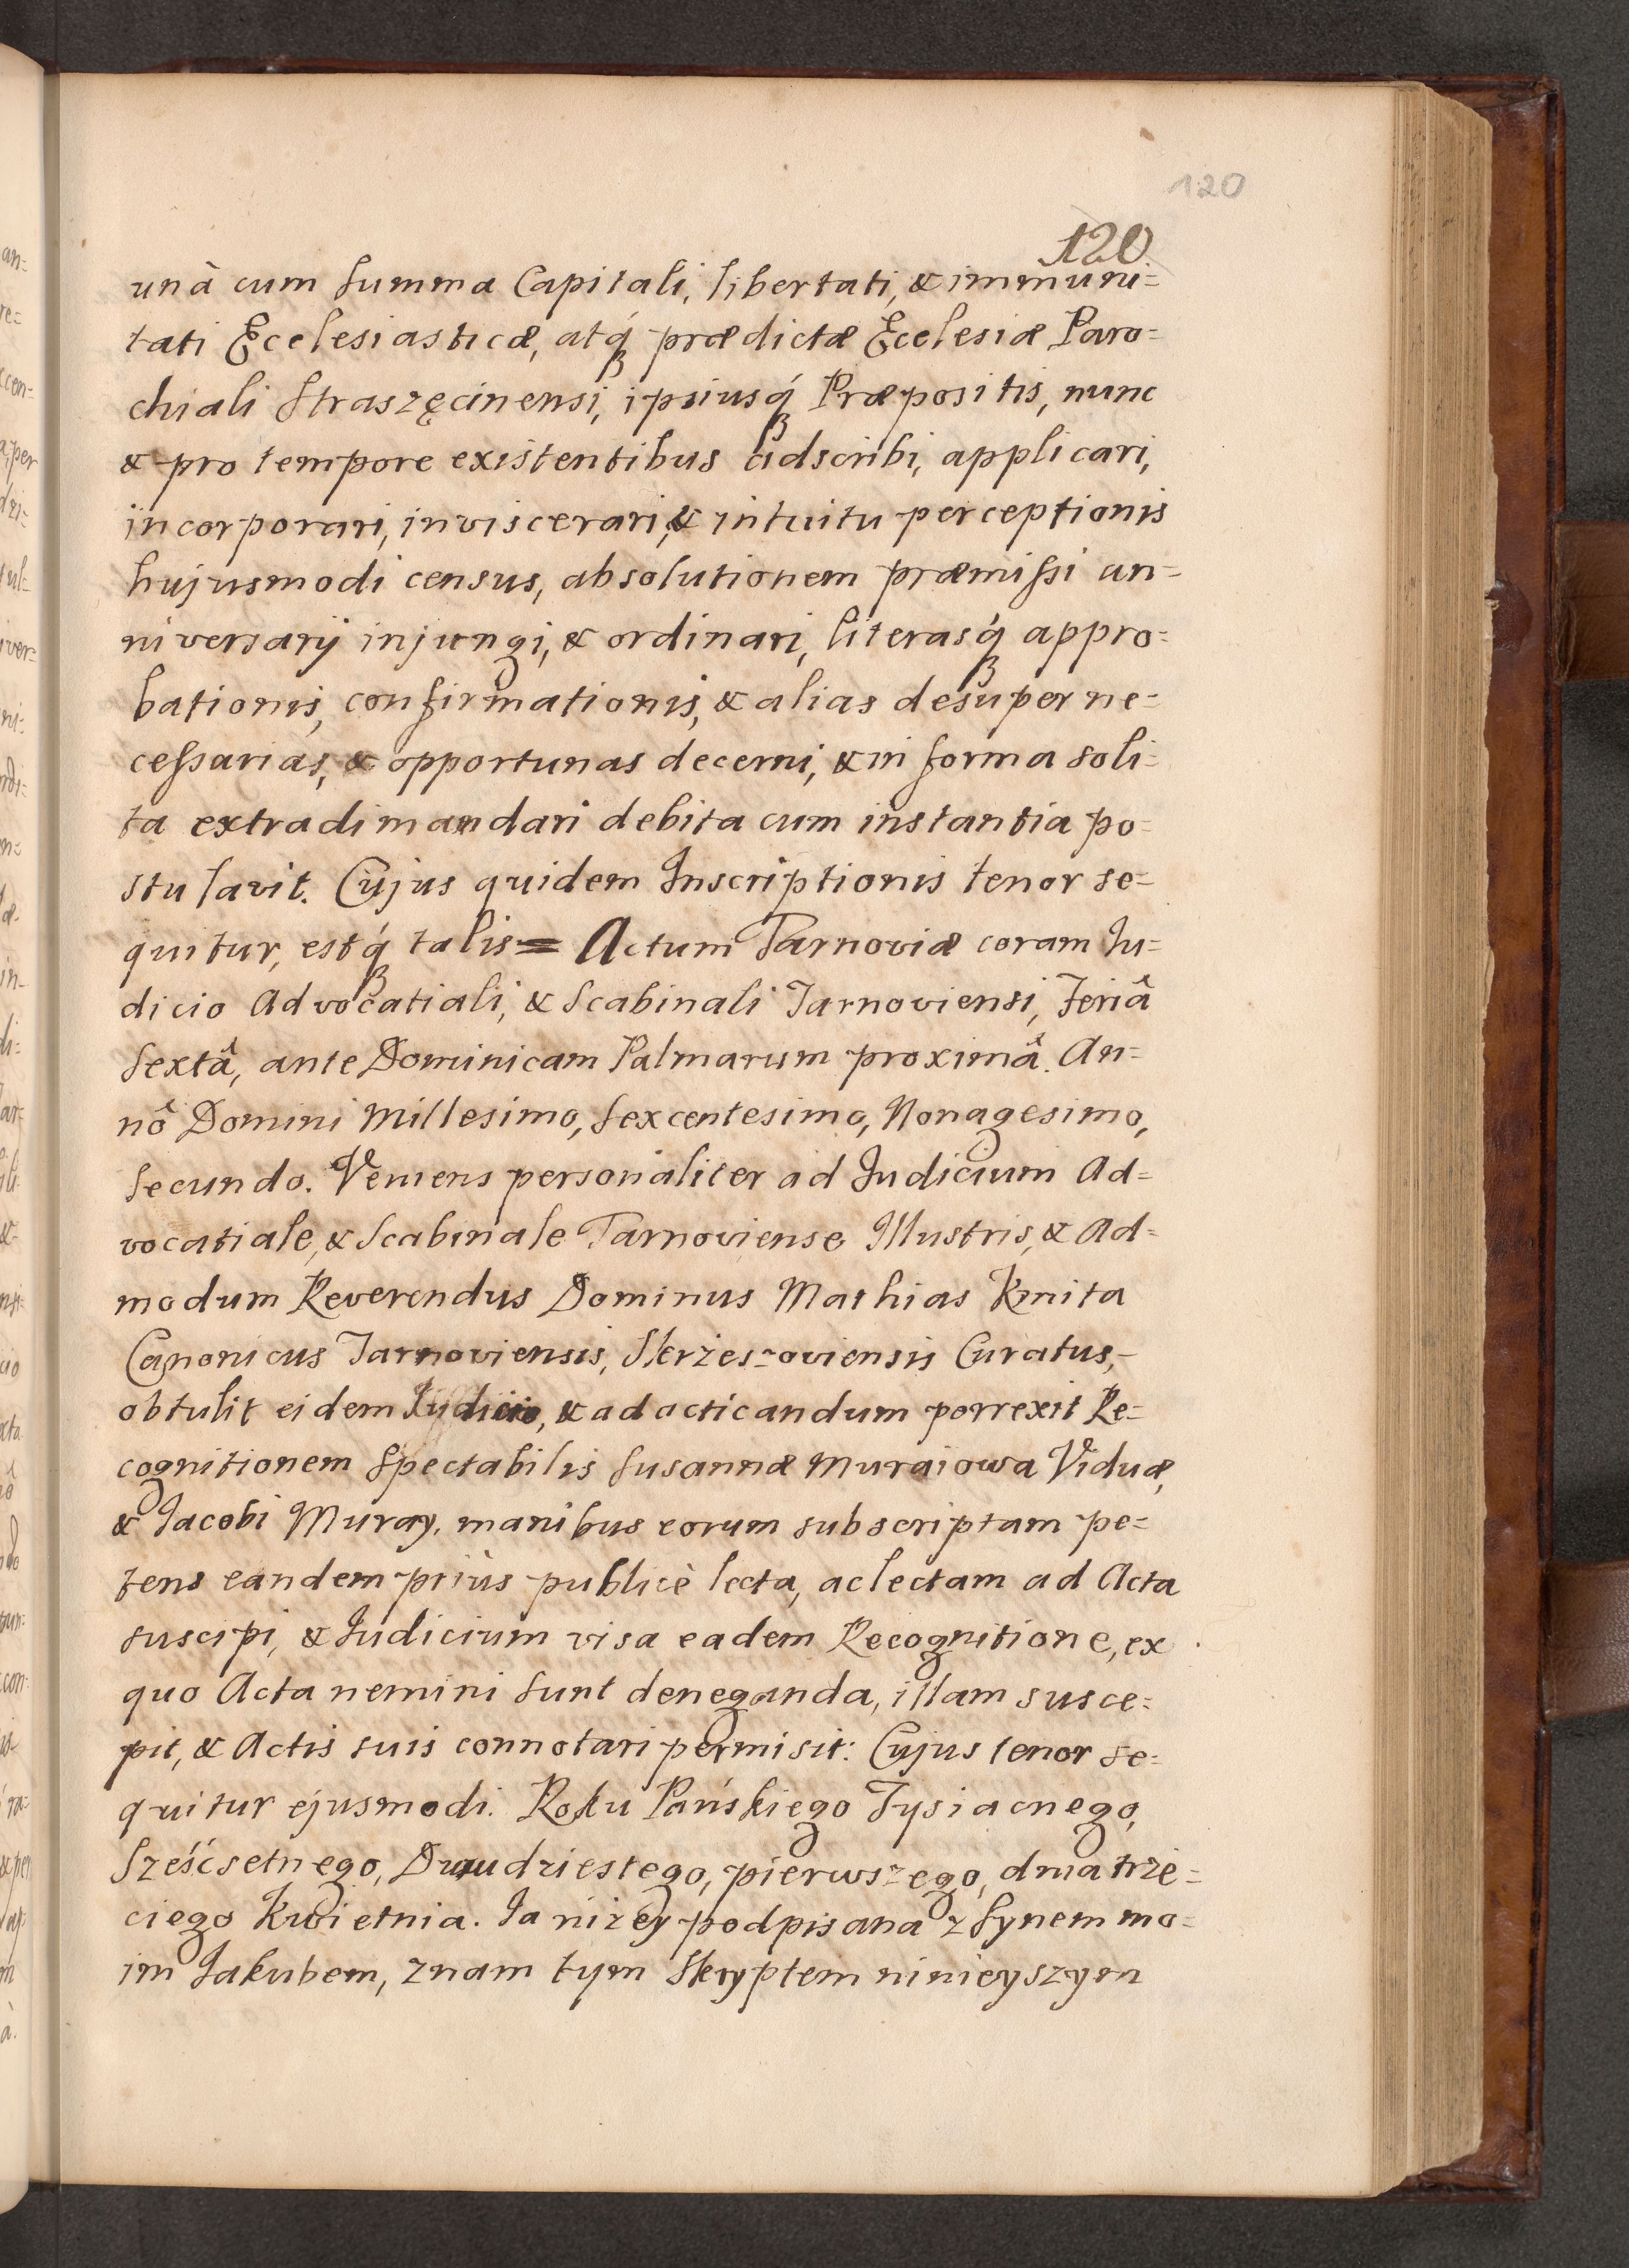 120
120
unà cum summa Capitali, libertati, & immuni=
tati Ecclesiasticæ, atq́ʒ prædictæ Ecclesiæ Paro=
chiali Straszęcinensi, ipsiusq́ʒ Præpositis, nunc
& pro tempore existentibus adscribi, applicari,
incorporari, inviscerari, & intuitu perceptionis
hujusmodi census, absolutionem præmissi an=
niversarij injungi, & ordinari, literasq́ʒ appro=
bationis, confirmationis, & alias desuper ne=
cessarias, & opportunas decerni, & in forma soli=
ta extradi mandari debita cum instantia po=
stulavit. Cujus quidem Inscriptionis tenor se=
quitur, estq́ʒ talis = Actum Tarnoviæ coram Ju=
dicio Advocatiali, & Scabinali Tarnoviensi, Feriâ
Sextâ, ante Dominicam Palmarum proximâ. An=
nô Domini Millesimo, Sexcentesimo, Nonagesimo,
Secundo. Veniens personaliter ad Judicium Ad=
vocatiale, & Scabinale Tarnoviense Illustris, & Ad=
modum Reverendus Dominus Mathias Kmita
Canonicus Tarnoviensis, Skrzeszoviensis Curatus,
obtulit eidem Judicio, & ad acticandum porrexit Re=
cognitionem Spectabilis Susannæ Muraiowa Viduæ,
& Jacobi Muray, manibus eorum subscriptam pe=
tens eandem priùs publicè lecta, ac lectam ad Acta
suscipi, & Judicium visa eadem Recognitione, ex
quo Acta nemini sunt deneganda, illam susce=
pit, & Actis suis connotari permisit: Cujus tenor se=
quitur ejusmodi. Roku Pańskiego Tysiacnego,
Sześćsetnego, Dwudziestego, pierwszego, dnia trze=
ciego Kwietnia. Ja niżey podpisana z Synem mo=
im Jakubem, znam tym Skryptem ninieyszym